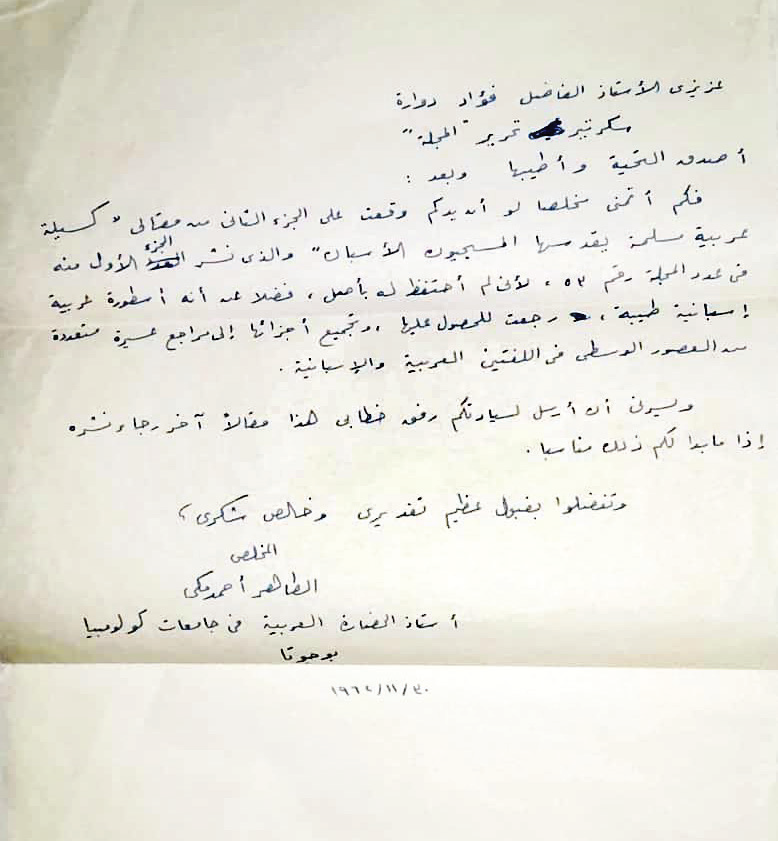 عزيزى الأستاذ الفاضل فؤاد دوارة
سكرتير تحرير "المجلة"
أصدق التحية وأطيبها وبعد :
فكم أتمنى مخلصا لو أن يدكم وقعت على الجزء الثانى من مقالى "كسيلة
عربية مسلمة يقدسها المسيحيون الأسبان" والذى نشر الجزء الأول منه
فى عدد المجلة رقم ٥٣ ، لأنى لم أحتفظ له بأصل ، فضلا عن أنه أسطورة عربية
إسبانية طيبة ، رجعت للحصول عليها ، وتجميع أجزائها إلى مراجع عسيرة متعددة
من العصور الوسطى فى اللغتين العربية والإسبانية .
ويسرنى أن أرسل لسيادتكم رفق خطابى هذا مقالاً آخر رجاء نشره
إذا ما بدا لكم ذلك مناسبا .
وتفضلوا بقبول عظيم تقديرى وخالص شكرى ،
المخلص
الطاهر أحمد مكى
أستاذ الحضارة العربية فى جامعات كولومبيا
بوجوتا
/١١/٣٠